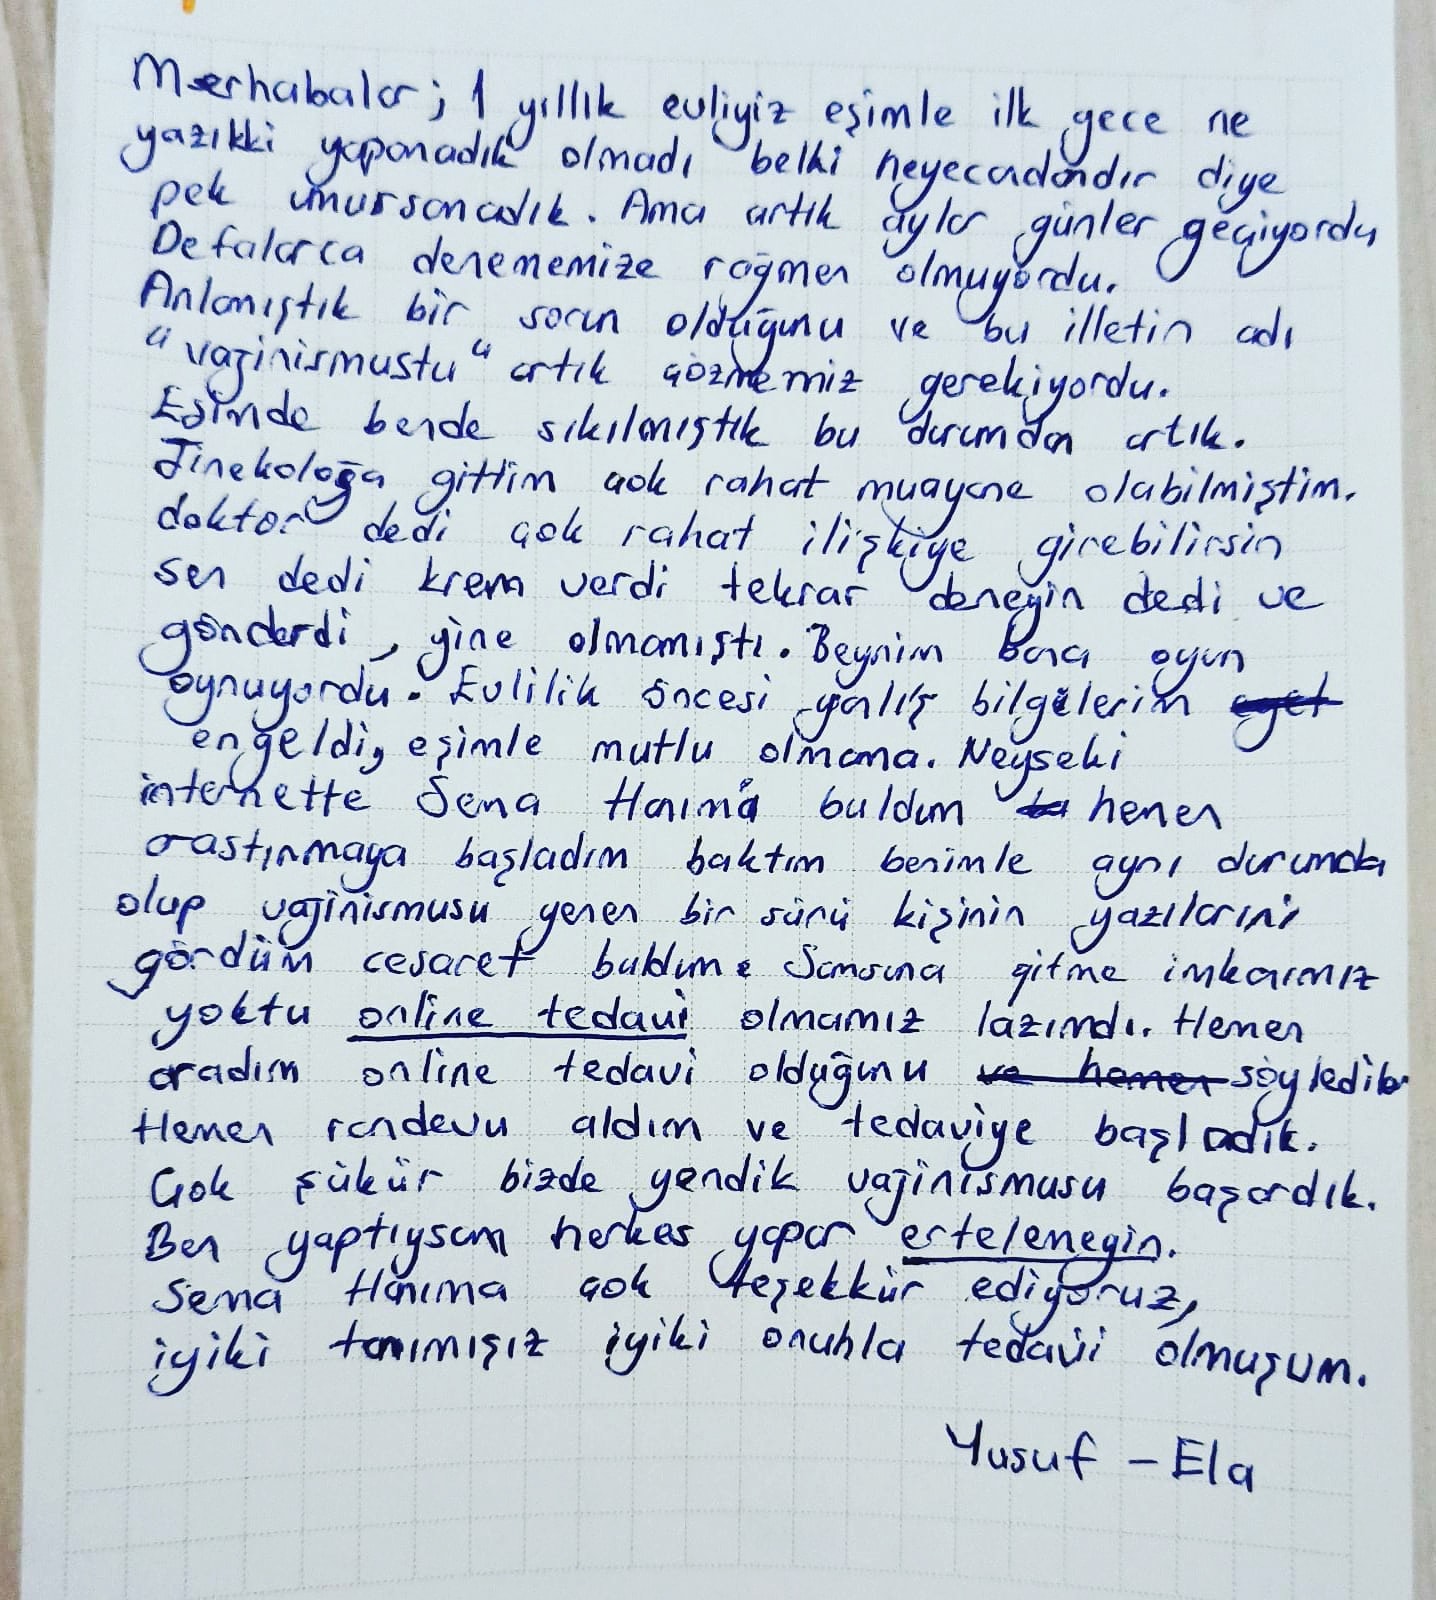 Merhabalar; 1 yıllık evliyiz eşimle ilk gece ne
yazıkki yapamadık olmadı belki heyecadandır diye
pek umursamadık. Ama artık aylar günler geçiyordu
Defalarca denememize rağmen olmuyordu.
Anlamıştık bir sorun olduğunu ve bu illetin adı
"vajinismustu" artık çözmemiz gerekiyordu.
Eşimde bende sıkılmıştık bu durumdan artık.
Jinekoloğa gittim çok rahat muayene olabilmiştim.
doktor dedi çok rahat ilişkiye girebilirsin
sen dedi krem verdi tekrar deneyin dedi ve
gönderdi, yine olmamıştı. Beynim bana oyun
oynuyordu. Evlilik öncesi yalış bilgilerim
engeldi, eşimle mutlu olmama. Neyseki
internette Sema Hanıma buldum hemen
araştırmaya başladım baktım benimle aynı durumda
olup vajinismusu yenen bir sürü kişinin yazılarını
gördüm cesaret buldum. Samsuna gitme imkanımız
yoktu online tedavi olmamız lazımdı. Hemen
aradım online tedavi olduğunu ve hemen söylediler
Hemen randevu aldım ve tedaviye başladık.
Çok şükür bizde yendik vajinismusu başardık.
Ben yaptıysam herkes yapar ertelemeyin.
Sema Hanıma çok teşekkür ediyoruz,
iyiki tanımışız iyiki onunla tedavi olmuşum.
Yusuf - Ela